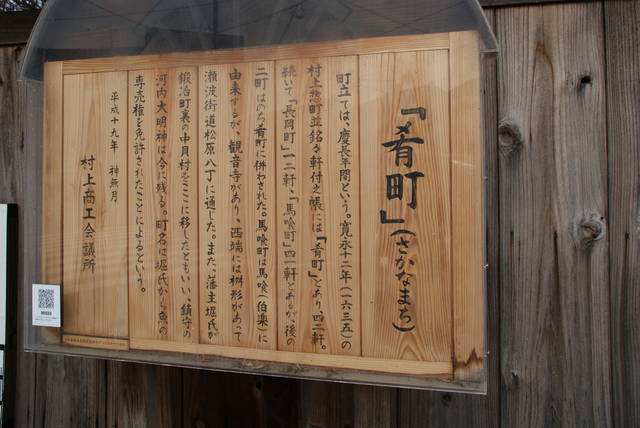 「肴町」(さかなまち)
町立ては、慶長年間という。寛永十二年(一六三五)の
村上惣町並銘々軒付之帳には「肴町」とあり、四二軒。
続いて「長岡町」一二軒、「馬喰町」四一軒とあるが、後の
二町はのち肴町に併わされた。馬喰町は馬喰(伯楽)に
由来するが、観音寺があり、西端には桝形があって
瀬波街道松原八丁に通じた。また、藩主堀氏が
鍛冶町裏の中貝村をここに移したともいい、鎮守の
河内大明神は今に残る。町名は堀氏から魚の
専売権を免許されたことによるという。
平成十九年 神無月
村上商工会議所